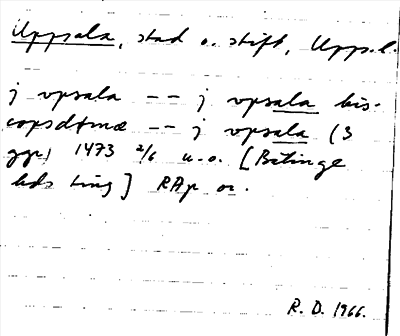 Uppsala, stad o. stift, Upps.l.
j vpsala -- j vpsala bis-
copsdøme -- j vpsala (3
ggr) 1473 2/6 u.o. [Bälinge
hds ting] RAp or.
R. D. 1966.